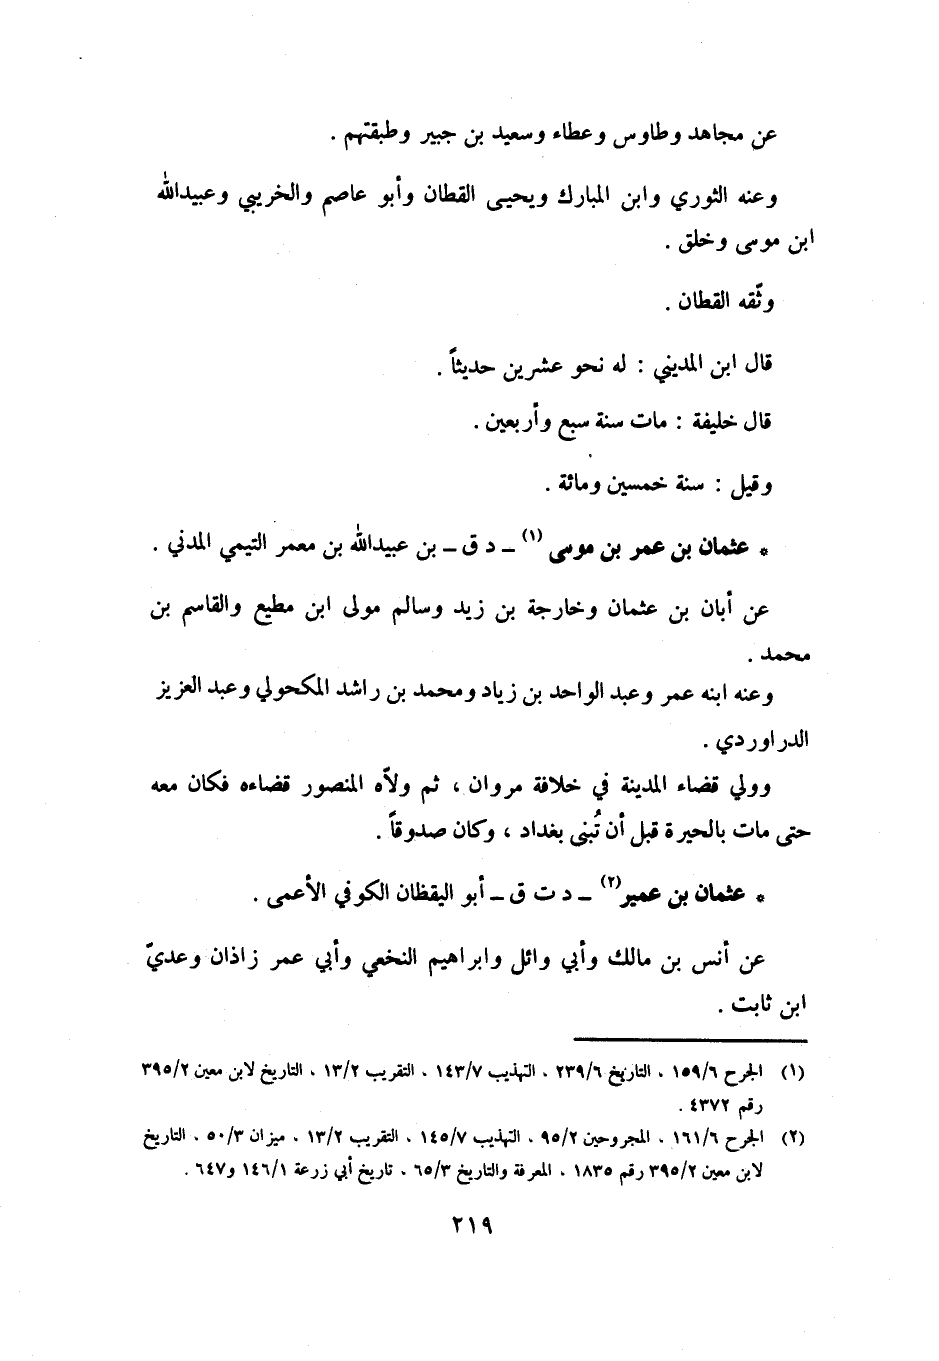 عن مجاهد وطاوس وعطاء وسعيد بن جبير وطبقتهم .
وعنه الثوري وابن المبارك ويحيى القطان وأبو عاصم والخريبي وعبيدالله
ابن موسى وخلق .
وثّقه القطان .
قال ابن المديني : له نحو عشرين حديثاً .
قال خليفة : مات سنة سبع وأربعين .
وقيل : سنة خمسين ومائة .
* عثمان بن عمر بن موسى (١) ـ د ق ـ بن عبيدالله بن معمر التيمي المدني .
عن أبان بن عثمان وخارجة بن زيد وسالم مولى ابن مطيع والقاسم بن
محمد .
وعنه ابنه عمر وعبد الواحد بن زياد ومحمد بن راشد المكحولي وعبد العزيز
الدراوردي .
وولي قضاء المدينة في خلافة مروان ، ثم ولاّه المنصور قضاءه فكان معه
حتى مات بالحيرة قبل أن تُبنى بغداد ، وكان صدوقاً .
* عثمان بن عمير(٢) ـ د ت ق ـ أبو اليقظان الكوفي الأعمى .
عن أنس بن مالك وأبي وائل وابراهيم النخعي وأبي عمر زاذان وعديّ
ابن ثابت .
(١) الجرح ١٥٩/٦ ، التاريخ ٢٣٩/٦ ، التهذيب ١٤٣/٧ ، التقريب ١٣/٢ ، التاريخ لابن معين ٣٩٥/٢
رقم ٤٣٧٢ .
(٢) الجرح ١٦١/٦ ، المجروحين ٩٥/٢ ، التهذيب ١٤٥/٧ ، التقريب ١٣/٢ ، ميزان ٥٠/٣ ، التاريخ
لابن معين ٣٩٥/٢ رقم ١٨٣٥ ، المعرفة والتاريخ ٦٥/٣ ، تاريخ أبي زرعة ١٤٦/١ و٦٤٧ .
٢١٩